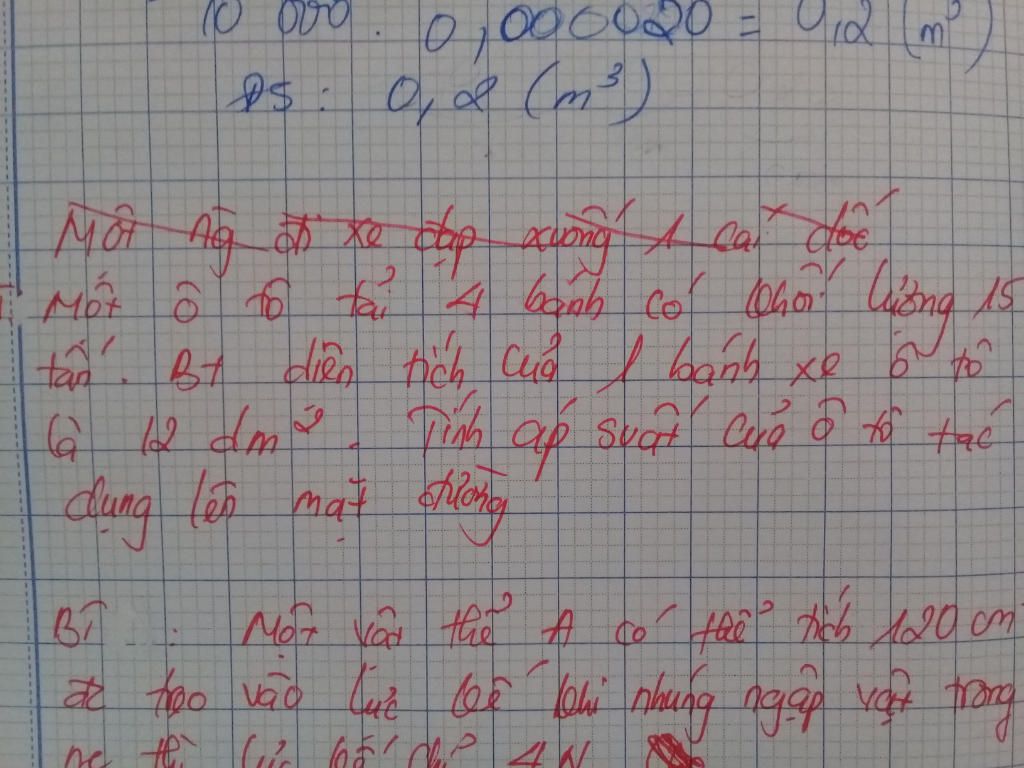 10 000 . 0,000020 = 0,2 (m³)
ĐS : 0,2 (m³)
Một ng đi xe đạp xuống 1 cái dốc
Một ô tô tải 4 bánh có khối lượng 15
tấn. Bt diện tích của 1 bánh xe ô tô
là 12 dm². Tính áp suất của ô tô tác
dụng lên mặt đường
Bì : Một vật thể A có thể tích 120 cm
treo vào lực kế khi nhúng ngập vật trong
nc thì lực kế chỉ 4N